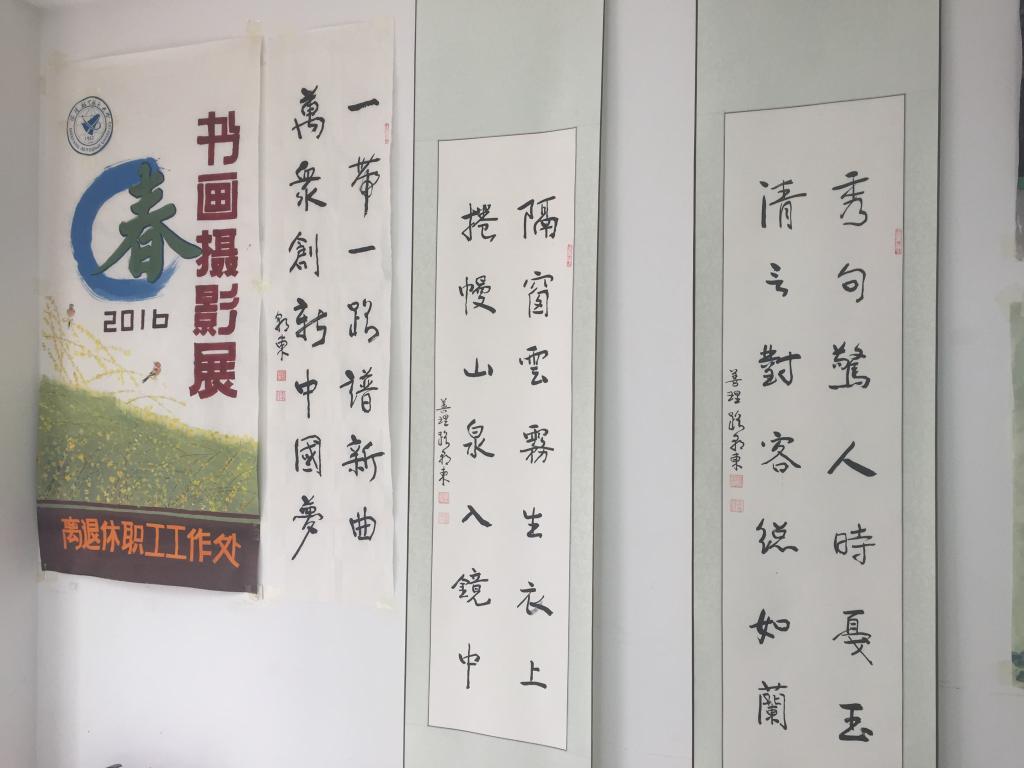 书画摄影展
春
2016
离退休职工工作处
一带一路谱新曲
萬衆創新中國夢
郭東
隔窗雲霧生衣上
捲幔山泉入鏡中
善理路郭東
秀句驚人時戛玉
清言對客總如蘭
善理路郭東